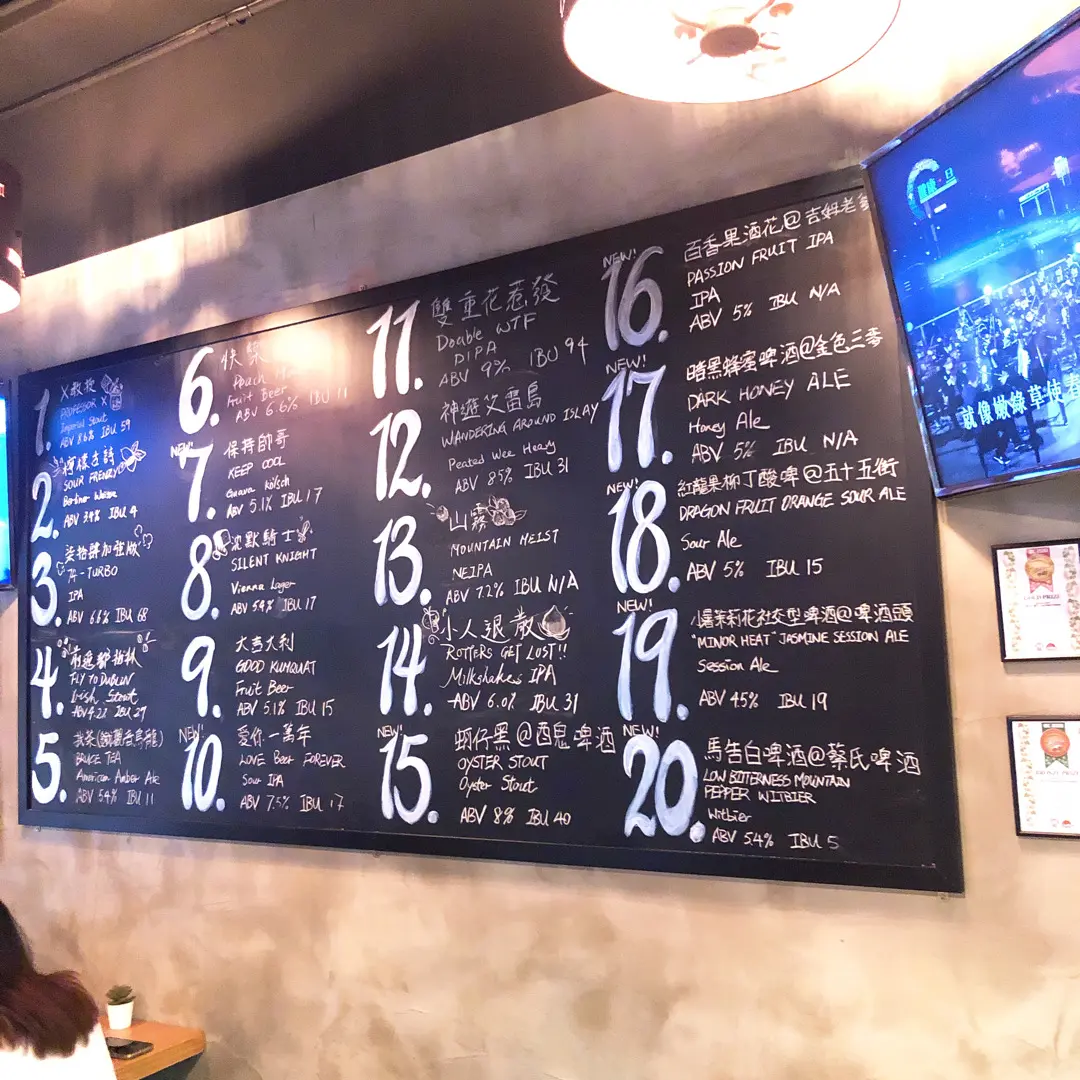 1.
X教授
PROFESSOR X
Imperial Stout
ABV 8.6% IBU 59
2.
SOUR FRENZY
Berliner Weisse
ABV 3.4% IBU 4
3.
74-TURBO
IPA
ABV 6.8% IBU 68
4.
FLY TO DUBLIN
Irish Stout
ABV 4.2% IBU 29
5.
我茶(鐵觀音烏龍)
BRUCE TEA
American Amber Ale
ABV 5.4% IBU 11
6.
快樂
Peach
Fruit Beer
ABV 6.6% IBU 11
NEW!
7.
保持帥哥
KEEP COOL
Guava Kölsch
ABV 5.1% IBU 17
8.
沈默騎士
SILENT KNIGHT
Vienna Lager
ABV 5.4% IBU 17
9.
大吉大利
GOOD KUMQUAT
Fruit Beer
ABV 5.1% IBU 15
NEW!
10.
愛你一萬年
LOVE Beer FOREVER
Sour IPA
ABV 7.5% IBU 17
11.
雙重花惹發
Double WTF
DIPA
ABV 9% IBU 94
12.
神遊艾雷島
WANDERING AROUND ISLAY
Peated Wee Heavy
ABV 8.5% IBU 31
13.
山霧
MOUNTAIN MEIST
NEIPA
ABV 7.2% IBU N/A
14.
小人退散
ROTTERS GET LOST!!
Milkshakes IPA
ABV 6.0% IBU 31
NEW!
15.
蚵仔黑@酉鬼啤酒
OYSTER STOUT
Oyster Stout
ABV 8% IBU 40
NEW!
16.
百香果酒花@吉姆老爹
PASSION FRUIT IPA
IPA
ABV 5% IBU N/A
NEW!
17.
暗黑蜂蜜啤酒@金色三麥
DARK HONEY ALE
Honey Ale
ABV 5% IBU N/A
NEW!
18.
紅龍果柳丁酸啤@五十五街
DRAGON FRUIT ORANGE SOUR ALE
Sour Ale
ABV 5% IBU 15
NEW!
19.
小爆茉莉花社交型啤酒@啤酒頭
"MINOR HEAT" JASMINE SESSION ALE
Session Ale
ABV 4.5% IBU 19
NEW!
20.
馬告白啤酒@蔡氏啤酒
LOW BITTERNESS MOUNTAIN
PEPPER WITBIER
Witbier
ABV 5.4% IBU 5
就像嫩綠草使春